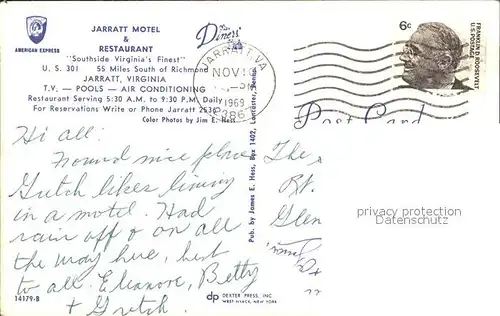 AMERICAN EXPRESS
JARRATT MOTEL
&
RESTAURANT
"Southside Virginia's Finest"
U. S. 301 55 Miles South of Richmond
JARRATT, VIRGINIA
T.V. — POOLS — AIR CONDITIONING
Restaurant Serving 5:30 A.M. to 9:30 P.M. Daily
For Reservations Write or Phone Jarratt
Color Photos by Jim E. Hess
Diners'
JARRATT, VA
NOV
PM
1969
6c
FRANKLIN D. ROOSEVELT
U.S. POSTAGE
Post Card
Hi all:
Found nice place
Gretch likes living
in a motel. Had
rain off & on all
the way here, best
to all. Eleanore, Betty
+ Gretch.
14179-B
Pub. by James E. Hess, Box 1402, Lancaster, Penna.
DEXTER PRESS, INC.
WEST NYACK, NEW YORK
The
Rt.
Glen
privacy protection
Datenschutz